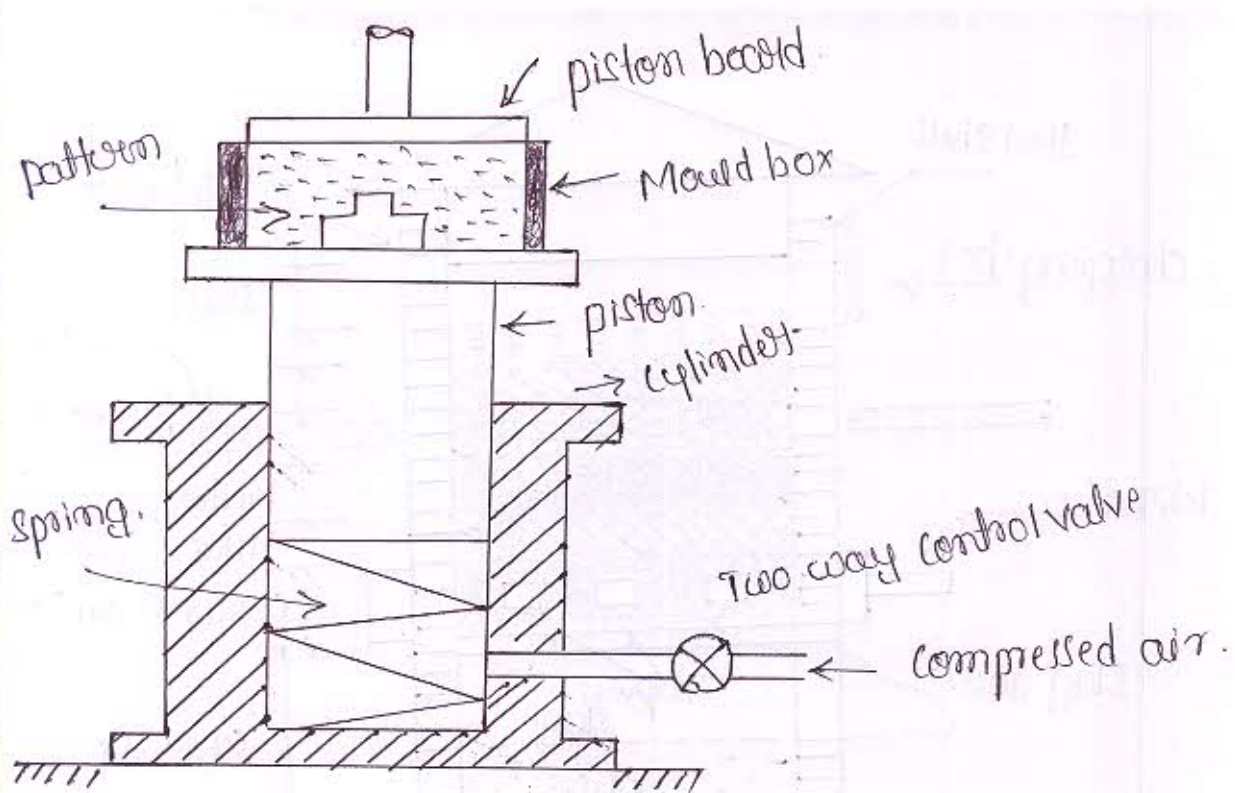 piston board
pattern
Mould box
piston.
cylinder
spring.
Two way control valve
compressed air.